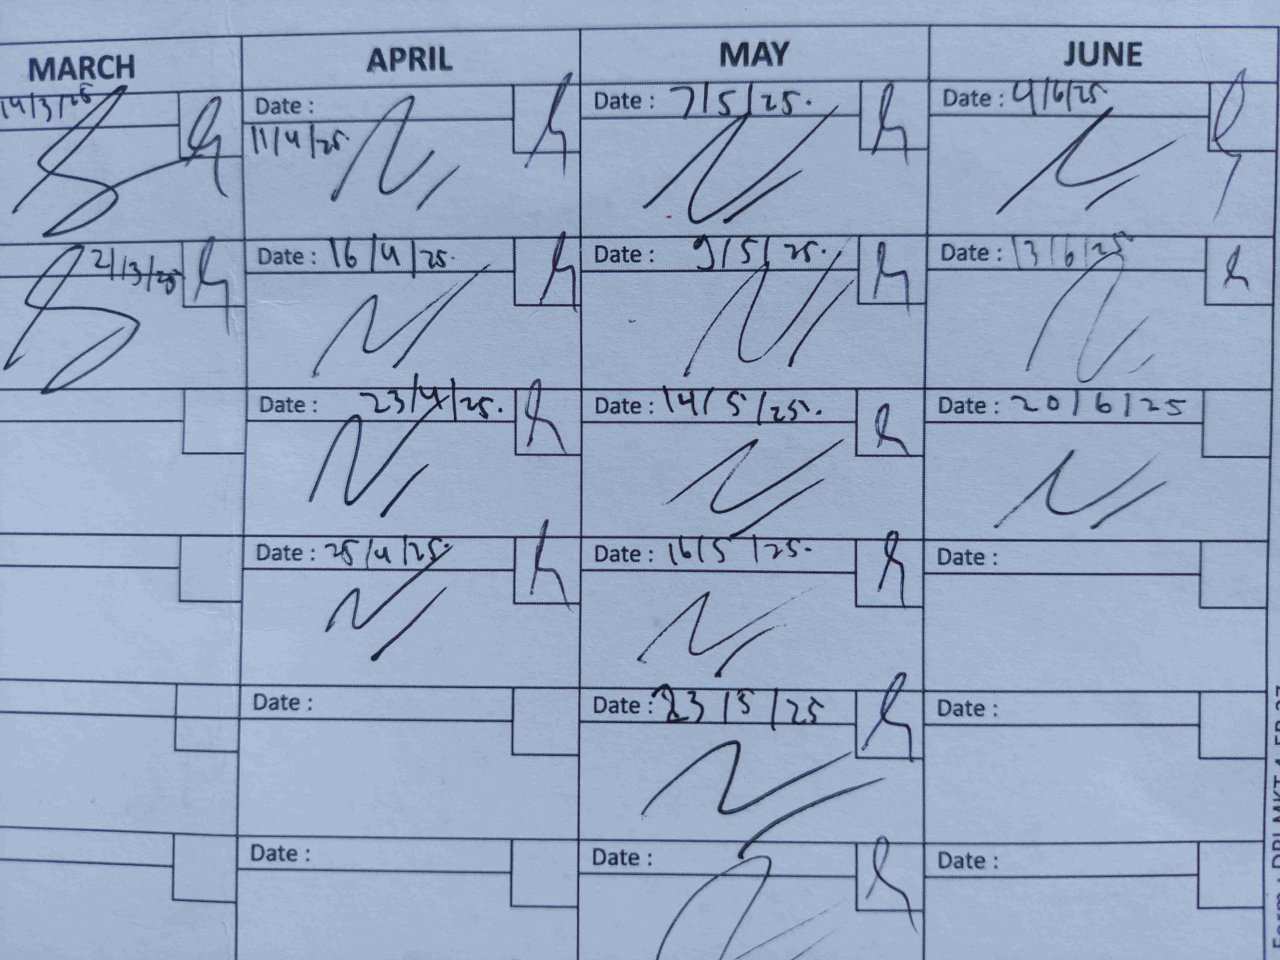 MARCH APRIL MAY JUNE
14/3/25 Date : Date : 7/5/25. Date : 4/6/25
11/4/25.
21/3/25 Date : 16/4/25. Date : 9/5/25. Date : 13/6/25
Date : 23/4/25. Date : 14/5/25. Date : 20/6/25
Date : 25/4/25. Date : 16/5/25. Date :
Date : Date : 23/5/25 Date :
Date : Date : Date :